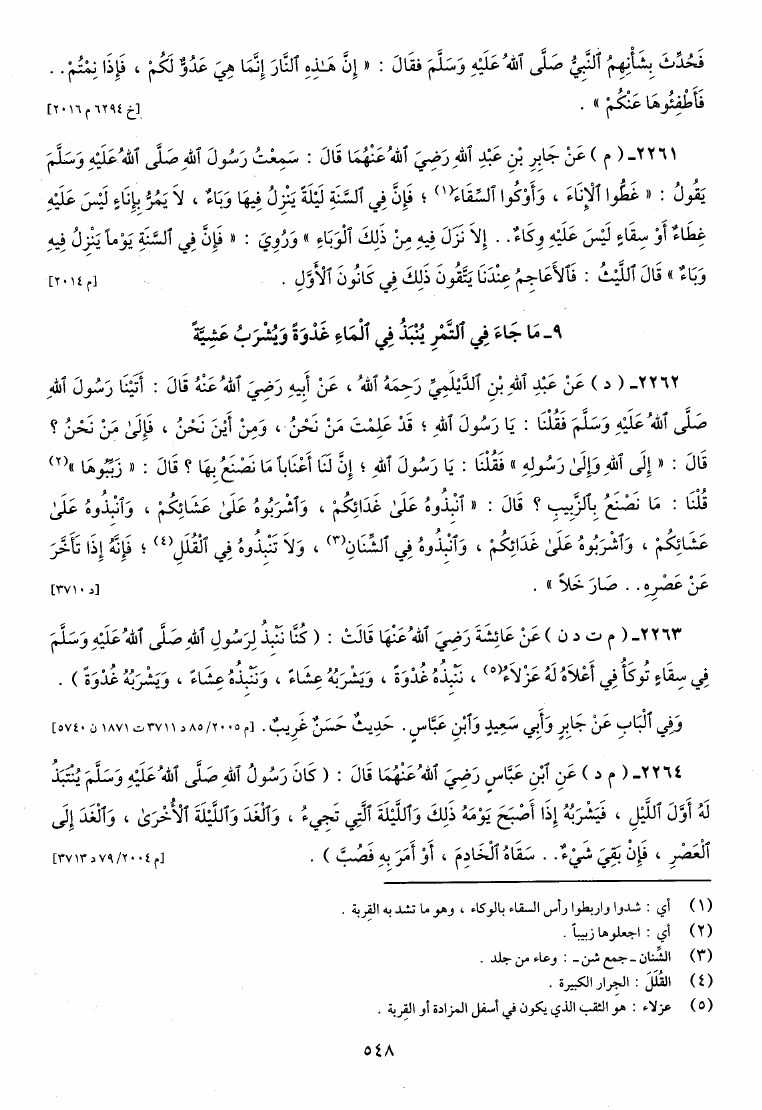 فَحُدِّثَ بِشَأْنِهِمُ ٱلنَّبِيُّ صَلَّى ٱللهُ عَلَيْهِ وَسَلَّمَ فَقَالَ : « إِنَّ هَـٰذِهِ ٱلنَّارَ إِنَّمَا هِيَ عَدُوٌّ لَكُمْ ، فَإِذَا نِمْتُمْ . .
فَأَطْفِئُوهَا عَنْكُمْ » . [خ ٦٢٩٤ م ٢٠١٦]
٢٢٦١ـ ( م ) عَنْ جَابِرِ بْنِ عَبْدِ ٱللهِ رَضِيَ ٱللهُ عَنْهُمَا قَالَ : سَمِعْتُ رَسُولَ ٱللهِ صَلَّى ٱللهُ عَلَيْهِ وَسَلَّمَ
يَقُولُ : « غَطُّوا ٱلْإِنَاءَ ، وَأَوْكُوا ٱلسِّقَاءَ(١) ؛ فَإِنَّ فِي ٱلسَّنَةِ لَيْلَةً يَنْزِلُ فِيهَا وَبَاءٌ ، لاَ يَمُرُّ بِإِنَاءٍ لَيْسَ عَلَيْهِ
غِطَاءٌ أَوْ سِقَاءٍ لَيْسَ عَلَيْهِ وِكَاءٌ . . إِلاَّ نَزَلَ فِيهِ مِنْ ذَلِكَ ٱلْوَبَاءِ » وَرُوِيَ : « فَإِنَّ فِي ٱلسَّنَةِ يَوْماً يَنْزِلُ فِيهِ
وَبَاءٌ » قَالَ ٱللَّيْثُ : فَٱلأَعَاجِمُ عِنْدَنَا يَتَّقُونَ ذَلِكَ فِي كَانُونَ ٱلْأَوَّلِ . [م ٢٠١٤]
٩ـ مَا جَاءَ فِي ٱلتَّمْرِ يُنْبَذُ فِي ٱلْمَاءِ غَدْوَةً وَيُشْرَبُ عَشِيَّةً
٢٢٦٢ـ ( د ) عَنْ عَبْدِ ٱللهِ بْنِ ٱلدَّيْلَمِيِّ رَحِمَهُ ٱللهُ ، عَنْ أَبِيهِ رَضِيَ ٱللهُ عَنْهُ قَالَ : أَتَيْنَا رَسُولَ ٱللهِ
صَلَّى ٱللهُ عَلَيْهِ وَسَلَّمَ فَقُلْنَا : يَا رَسُولَ ٱللهِ ؛ قَدْ عَلِمْتَ مَنْ نَحْنُ ، وَمِنْ أَيْنَ نَحْنُ ، فَإِلَىٰ مَنْ نَحْنُ ؟
قَالَ : « إِلَى ٱللهِ وَإِلَىٰ رَسُولِهِ » فَقُلْنَا : يَا رَسُولَ ٱللهِ ؛ إِنَّ لَنَا أَعْنَاباً مَا نَصْنَعُ بِهَا ؟ قَالَ : « زَبِّبُوهَا »(٢)
قُلْنَا : مَا نَصْنَعُ بِٱلزَّبِيبِ ؟ قَالَ : « ٱنْبِذُوهُ عَلَىٰ غَدَائِكُمْ ، وَٱشْرَبُوهُ عَلَىٰ عَشَائِكُمْ ، وَٱنْبِذُوهُ عَلَىٰ
عَشَائِكُمْ ، وَٱشْرَبُوهُ عَلَىٰ غَدَائِكُمْ ، وَٱنْبِذُوهُ فِي ٱلشِّنَانِ(٣) ، وَلاَ تَنْبِذُوهُ فِي ٱلْقُلَلِ(٤) ؛ فَإِنَّهُ إِذَا تَأَخَّرَ
عَنْ عَصْرِهِ . . صَارَ خَلاًّ » . [د ٣٧١٠]
٢٢٦٣ـ ( م ت د ن ) عَنْ عَائِشَةَ رَضِيَ ٱللهُ عَنْهَا قَالَتْ : ( كُنَّا نَنْبِذُ لِرَسُولِ ٱللهِ صَلَّى ٱللهُ عَلَيْهِ وَسَلَّمَ
فِي سِقَاءٍ تُوكَأُ فِي أَعْلاَهُ لَهُ عَزْلاَءُ(٥) ، نَنْبِذُهُ غُدْوَةً ، وَيَشْرَبُهُ عِشَاءً ، وَنَنْبِذُهُ عِشَاءً ، وَيَشْرَبُهُ غُدْوَةً ) .
وَفِي ٱلْبَابِ عَنْ جَابِرٍ وَأَبِي سَعِيدٍ وَٱبْنِ عَبَّاسٍ . حَدِيثٌ حَسَنٌ غَرِيبٌ . [م ٨٥/٢٠٠٥ د ٣٧١١ ت ١٨٧١ ن ٥٧٤٠]
٢٢٦٤ـ ( م د ) عَنِ ٱبْنِ عَبَّاسٍ رَضِيَ ٱللهُ عَنْهُمَا قَالَ : ( كَانَ رَسُولُ ٱللهِ صَلَّى ٱللهُ عَلَيْهِ وَسَلَّمَ يُنْتَبَذُ
لَهُ أَوَّلَ ٱللَّيْلِ ، فَيَشْرَبُهُ إِذَا أَصْبَحَ يَوْمَهُ ذَلِكَ وَٱللَّيْلَةَ ٱلَّتِي تَجِيءُ ، وَٱلْغَدَ وَٱللَّيْلَةَ ٱلْأُخْرَىٰ ، وَٱلْغَدَ إِلَى
ٱلْعَصْرِ ، فَإِنْ بَقِيَ شَيْءٌ . . سَقَاهُ ٱلْخَادِمَ ، أَوْ أَمَرَ بِهِ فَصُبَّ ) . [م ٧٩/٢٠٠٤ د ٣٧١٣]
(١) أي : شدوا واربطوا رأس السقاء بالوكاء ، وهو ما تشد به القِربة .
(٢) أي : اجعلوها زبيباً .
(٣) الشِّنان ـ جمع شن ـ : وعاء من جلد .
(٤) القُلَلُ : الجرار الكبيرة .
(٥) عزلاء : هو الثقب الذي يكون في أسفل المزادة أو القِربة .
٥٤٨